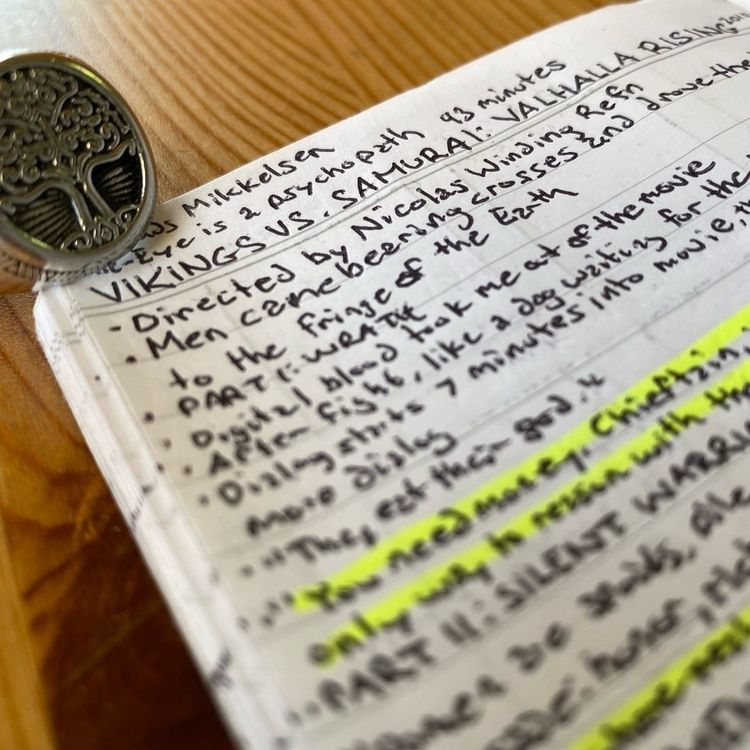 Mikkelsen 93 minutes
-Eye is a psychopath
VIKINGS VS. SAMURAI: VALHALLA RISING 201
- Directed by Nicolas Winding Refn
• Men came bearing crosses and drove the
to the fringe of the Earth
• PART I: WRATH
• Digital blood took me out of the movie
• After fight, like a dog waiting for the
• Dialog starts 7 minutes into movie,
more dialog
• "They eat their god."
• "You need money, Chieftain,
only way to reason with
• PART II: SILENT WARRIOR
be
honor,